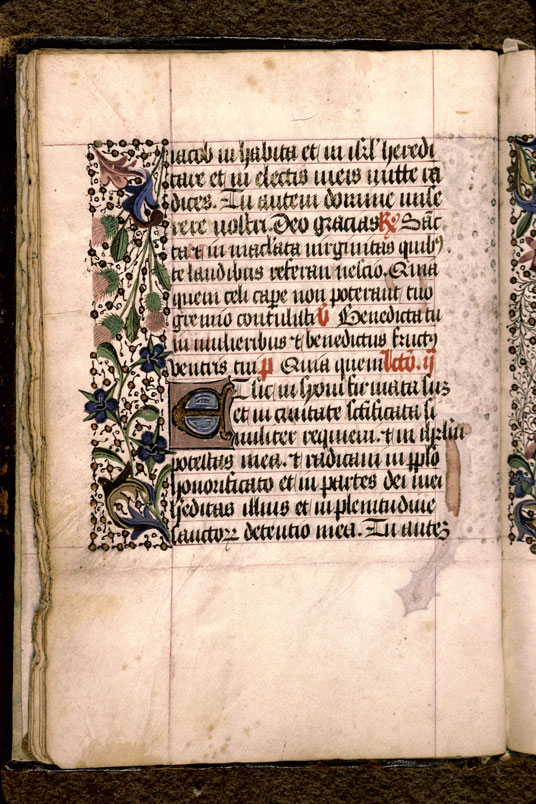 iacob in habita et in isrl heredi
tare et in electis meis mitte ra
dices. Tu autem domine mise
rere nostri. Deo gracias R Sanc
ta et in maclata virginitas quib9
te laudibus referan nescio. Quia
quem celi cape non poterant tuo
gremio contulisti V Benedicta tu
in mulieribus et benedictus fructus
ventris tui. P Quia quem lcto. ij
Et sic in syon firmata sum
et in civitate sctificata si
militer requieui. et in ihrlm
potestas mea. et radicaui in pplo
honorificato et in partes dei mei
hereditas illius et in plenitudine
sanctorum detentio mea. Tu autem